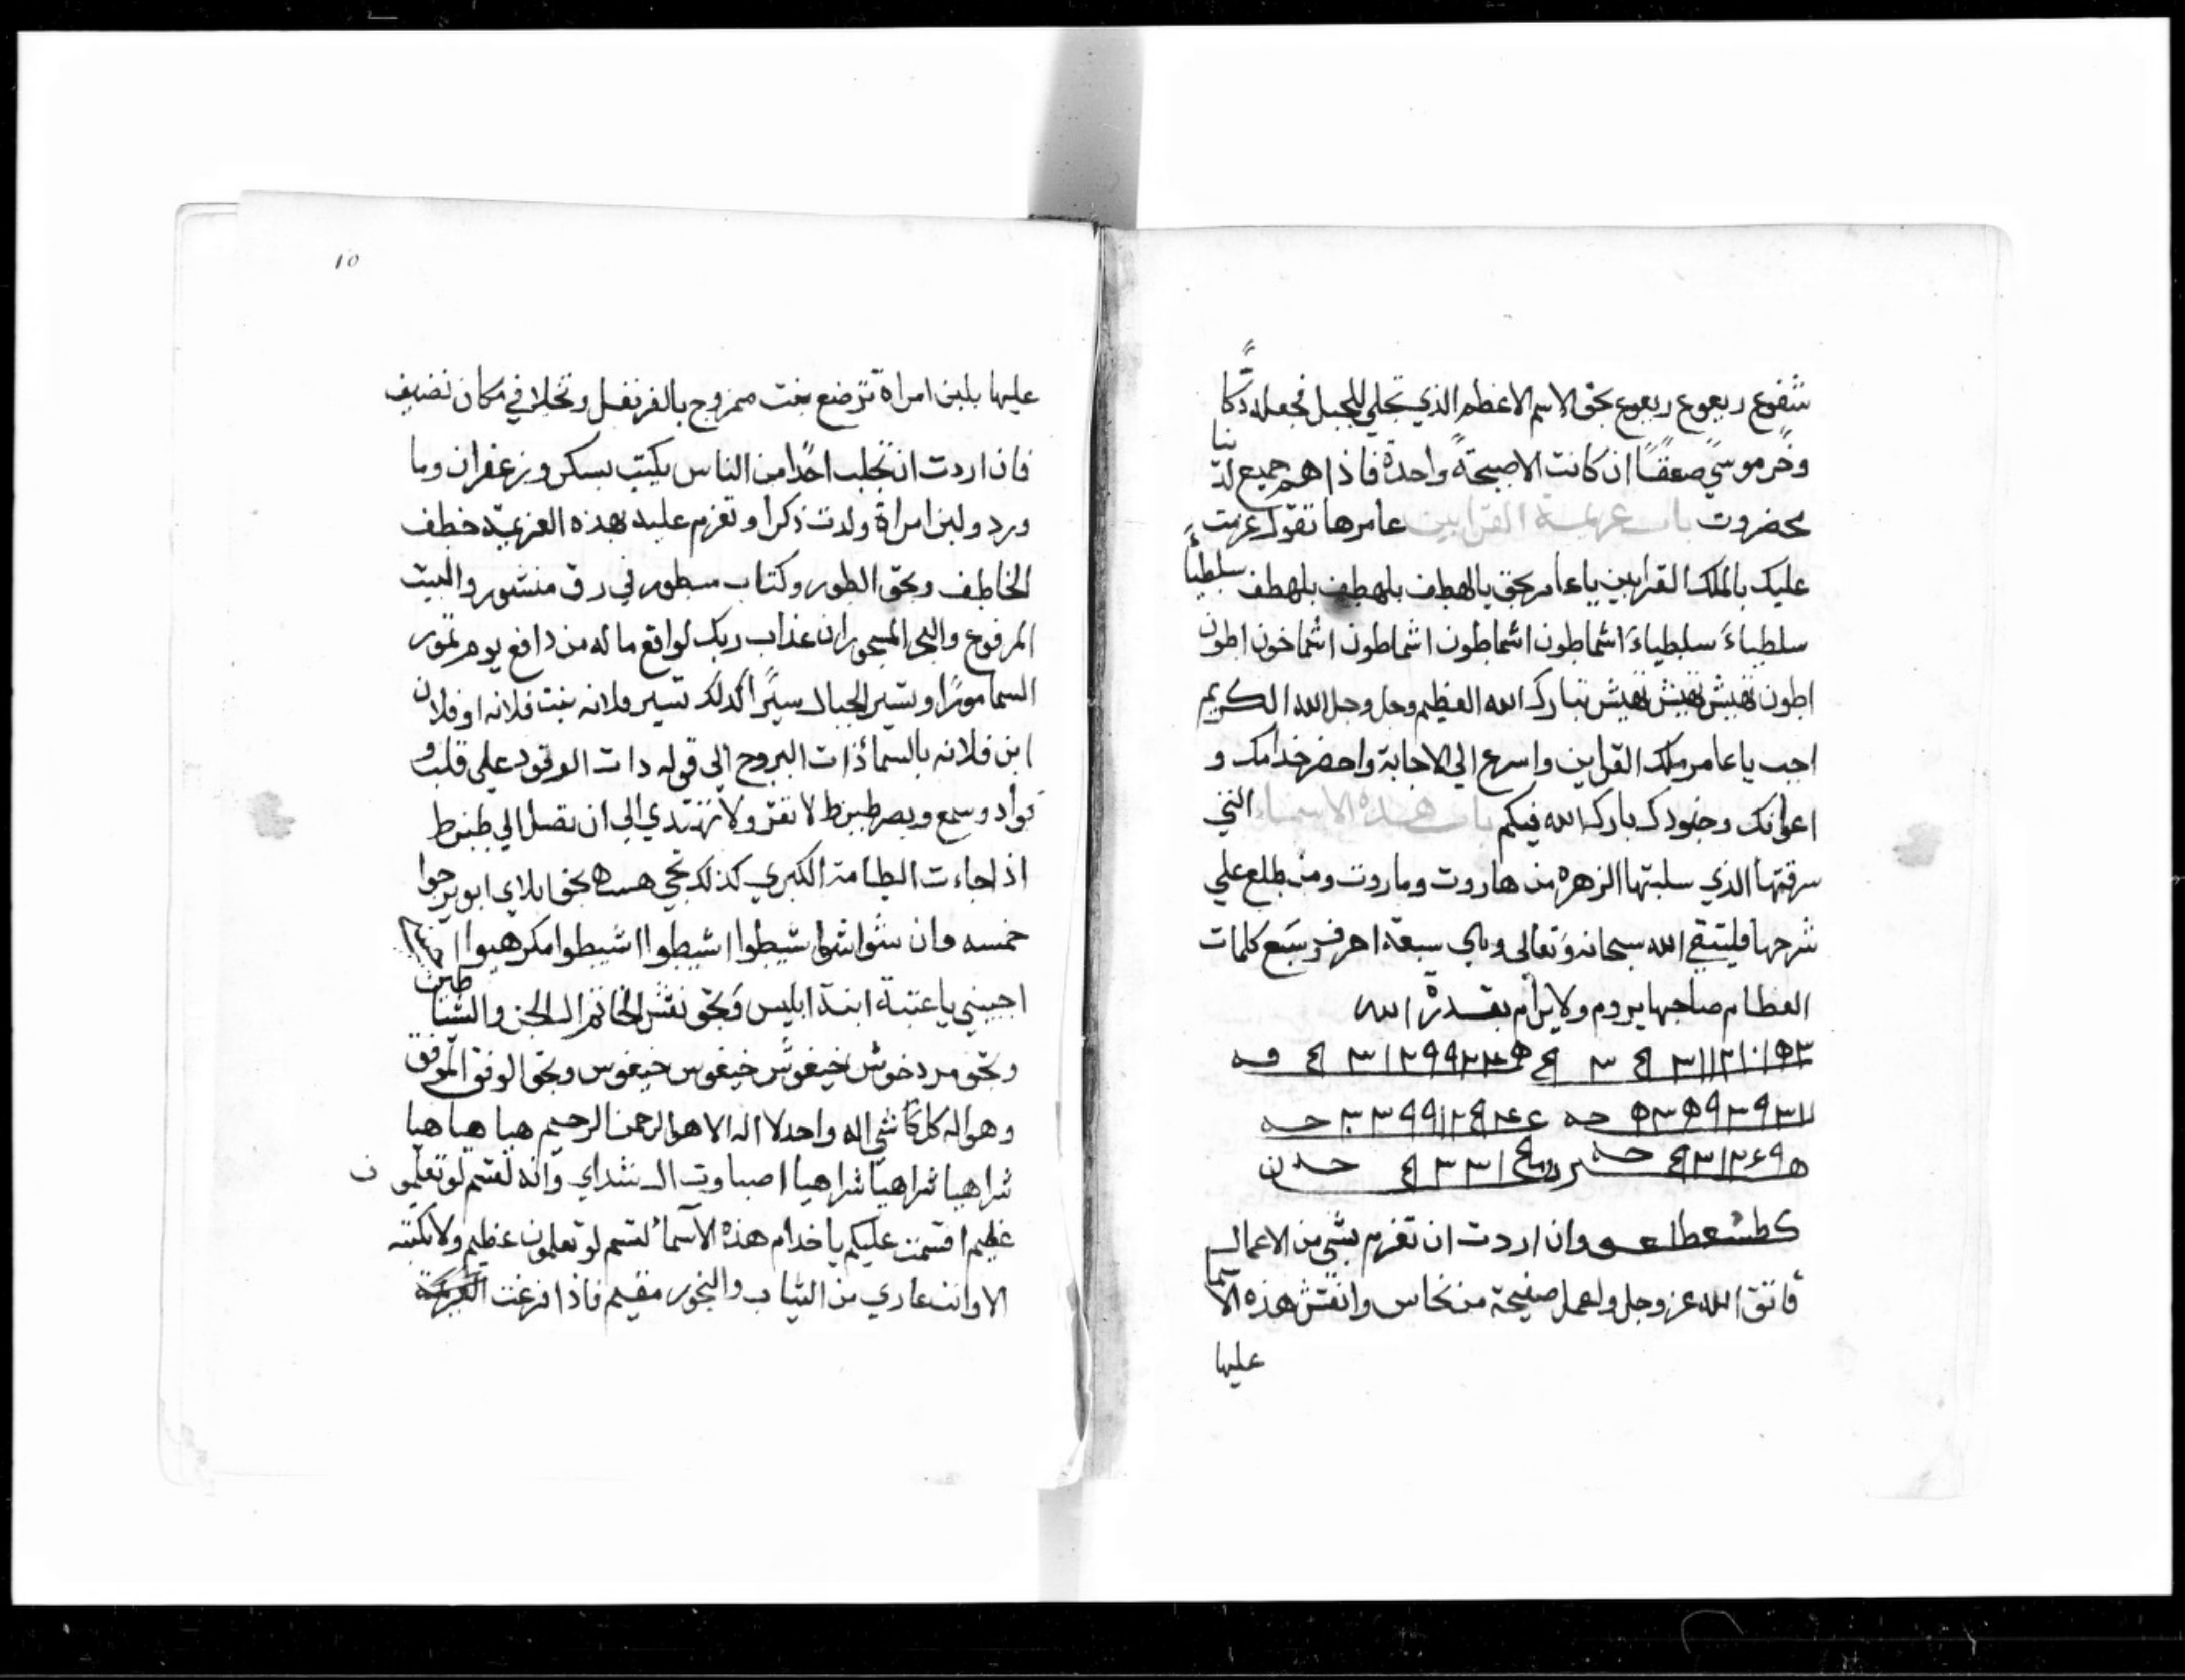 شفوع ربعوع ربعوع بحق الاسم الاعظم الذي تجلي للجبل فجعله دكا
وخر موسي صعقا ان كانت الا صيحة واحدة فاذا هم جميع لدينا
محضروت باب عزيمة القرابين عامرها تقول عزمت
عليك بالملك القرابين ياعامر بحق يالهطف بلهطف بلهطف سلطيا
سلطباء سلطياء اشماطون اشماطون اشماطون اشماخون اطون
اطون نهيش نهيش نهيش تبارك الله العظيم وجل وجل الله الكريم
اجب ياعامر ملك القرابين واسرع الي الاجابة واحضر خدامك و
اعوانك وجنودك بارك الله فيكم باب هذه الاسماء التي
سرقتها الذي سلبتها الزهره من هاروت وماروت ومن طلع علي
شرحها فليتقي الله سبحانه وتعالى وباي سبعة احرف وسبع كلمات
العظام صاحبها يروم ولا يرام بقدرة الله
وان اردت ان تعزم بشي من الاعمال
فاتق الله عز وجل واعمل صفيحة من نحاس وانقش هذه الاسما
عليها
١٥
عليها بلبن امراة ترضع بنت ممزوج بالقرنفل وتخلا في مكان نضيف
فان اردت ان تجلب احدا من الناس يكتب بسكر وزعفران وما
ورد ولبن امراة ولدت ذكرا وتعزم عليه بهذه العزيمة خطف
الخاطف وبحق الطور وكتاب مسطور في رق منشور والبيت
المرفوع والبحر المسجور ان عذاب ربك لواقع ما له من دافع يوم تمور
السما مورا وتسير الجبال سيرا كذلك تسير فلانه بنت فلانه او فلان
ابن فلانه بالسما ذات البروج الي قوله دات الوقود علي قلب و
فواد وسمع وبصر طبنرط لا تقر ولا تهتدي الي ان تصل الي طبنرط
اذا جاءت الطامة الكبري كذلك تجي هست بحق ابلاي ابويرجوا
خمسه وان شوا شوا شيطوا اشيطوا اشيطوا مكرهبوا
اجيبني ياعتبة ابنة ابليس وبحق نقش الخاتم ال الجن والشياطين
وبحق مردخوش خيغوش خيغوس خيغوس وبحق الوفق الموفق
وهو اله كل شي اله واحد لا اله الا هو الرحمن الرحيم هيا هيا هيا
شراهيا شراهيا شراهيا اصباوت ال شداي وانه لقسم لو تعلمون
عظيم اقسمت عليكم ياخدام هذه الاسما لقسم لو تعلمون عظيم ولا تكتبه
الا وانت عاري من الثياب والبخور مقيم فاذا فرغت العزيمة